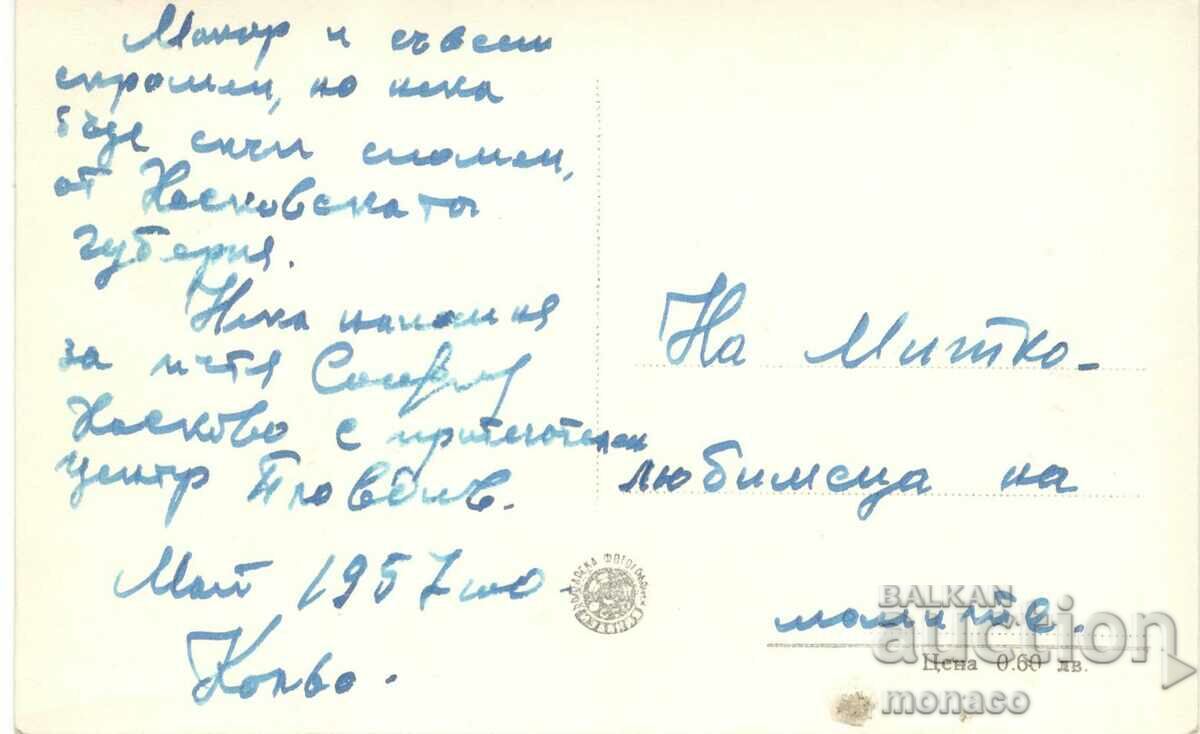 Макар и съвсем
скромен, но нека
бъде скъп спомен,
от Хасковската
губерня.
Нека напомня
за пътя
Хасково с притегателен
център Пловдив.
Май 1957 год
Кольо.
На Митко -
любимеца на
момите.
Цена 0.60 лв.
BALKAN
auction
monaco